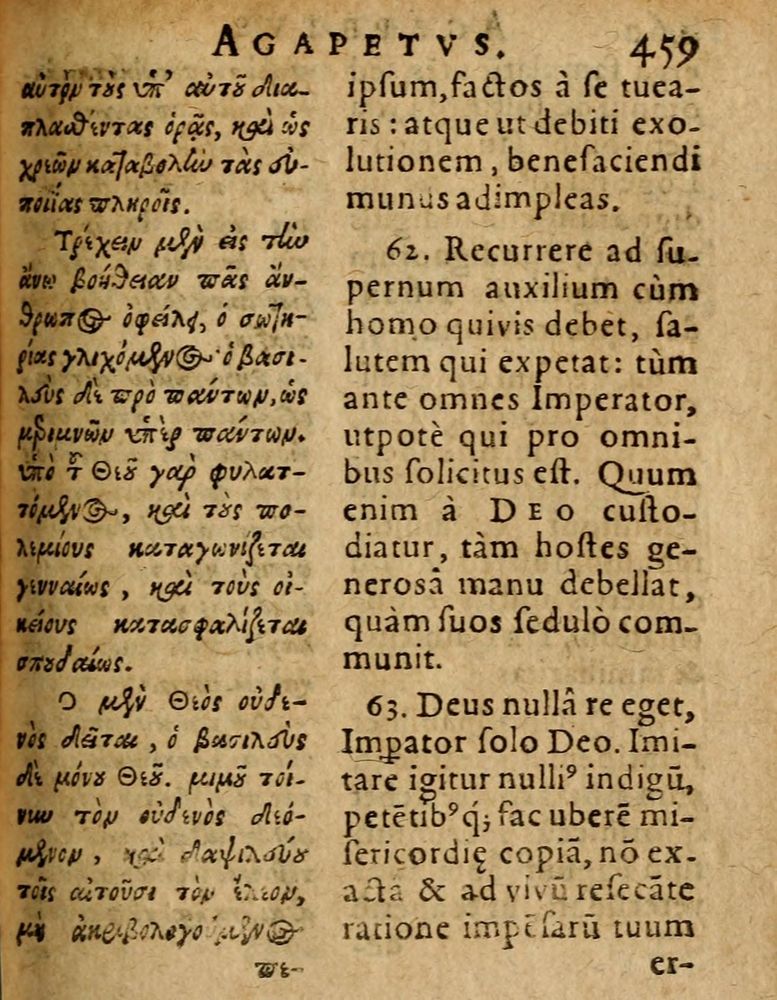 AGAPETVS. 459
αὐτὸν τοὺς ὑπ' αὐτοῦ δια-
πλασθέντας ὁρᾷς, καὶ ὡς
χρεῶν καταβολὴν τὰς εὐ-
ποιΐας πληροῖς.
Τρέχειν μὲν εἰς τὴν
ἄνω βοήθειαν πᾶς ἄν-
θρωπος ὀφείλει, ὁ σωτη-
ρίας γλιχόμενος· ὁ βασι-
λεὺς δὲ πρὸ πάντων, ὡς
μεριμνῶν ὑπὲρ πάντων.
ὑπὸ τοῦ Θεοῦ γὰρ φυλατ-
τόμενος, καὶ τοὺς πο-
λεμίους καταγωνίζεται
γενναίως, καὶ τοὺς οἰ-
κείους κατασφαλίζεται
σπουδαίως.
Ο μὲν Θεὸς οὐδε-
νὸς δεῖται, ὁ βασιλεὺς
δὲ μόνου Θεοῦ. μιμοῦ τοί-
νυν τὸν οὐδενὸς δεό-
μενον, καὶ δαψιλεύου
τοῖς αἰτοῦσι τὸν ἔλεον,
μὴ ἀκριβολογούμενος
πε-
ipsum, factos â se tuea-
ris: atque ut debiti exo-
lutionem, benefaciendi
munus adimpleas.
62. Recurrere ad su-
pernum auxilium cùm
homo quivis debet, sa-
lutem qui expetat: tùm
ante omnes Imperator,
utpotè qui pro omni-
bus solicitus est. Quum
enim à DEO custo-
diatur, tàm hostes ge-
nerosâ manu debellat,
quàm suos sedulò com-
munit.
63. Deus nullâ re eget,
Impator solo Deo. Imi-
tare igitur nulliꝰ indigũ,
petẽtibꝰq́; fac uberẽ mi-
sericordię copiã, nõ ex-
acta & ad vivũ resecãte
ratione impẽsarũ tuum
er-